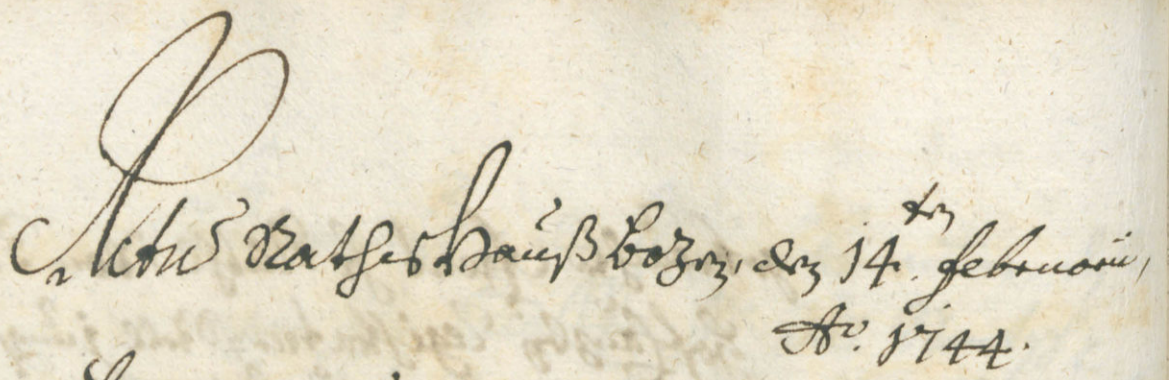 Actum Rathshauß Bozen, den 14.ten Februarii,
Ao. 1744.